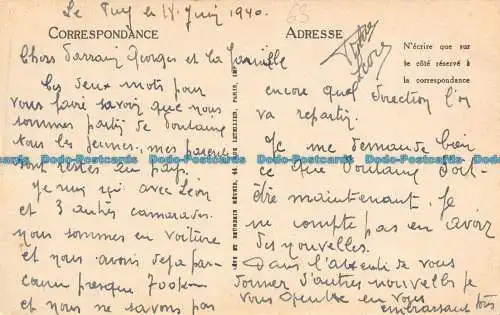 Le Puy le 18 Juin 1940.
63
CORRESPONDANCE
ADRESSE
N'écrire que sur
le côté réservé à
la correspondance
Chers Parrain Georges et la famille
Ces deux mots pour
vous faire savoir que nous
sommes parti de Doulaine
tous les jeunes, mes parents
sont restés au pays.
Je suis ici avec Léon
et 3 autres camarades.
nous sommes en voiture
et nous avons déjà par-
couru presque 700km
et nous ne savons pas
encore quel direction l'on
va repartir.
Je me demande bien
ce que Doulaine doit-
être maintenant. Je
ne compte pas en avoir
des nouvelles.
Dans l'attente de vous
donner d'autres nouvelles je
vous quitte en vous
embrassant tous
Dodo-Postcards Dodo-Postcards Dodo-Postcards Dodo-Postcards